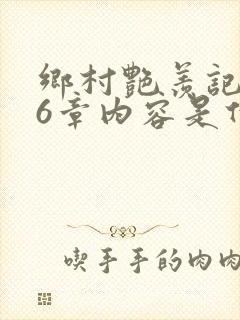 鄉村艷羨記
6章內容是什
喫手手的肉肉